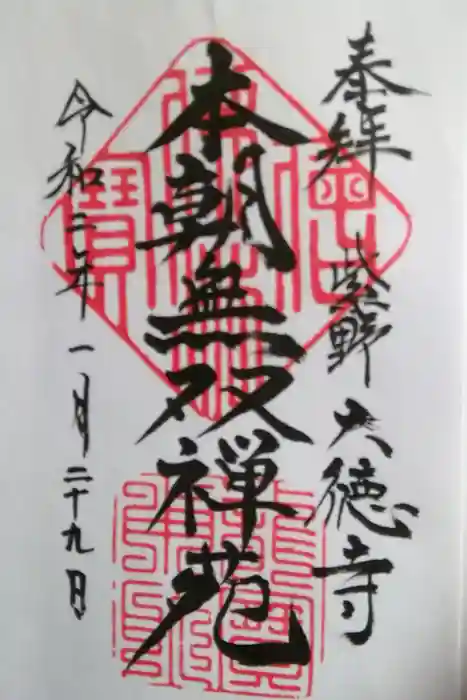 奉拝 紫野 大徳寺
本朝無双禅苑
令和三年一月二十九日